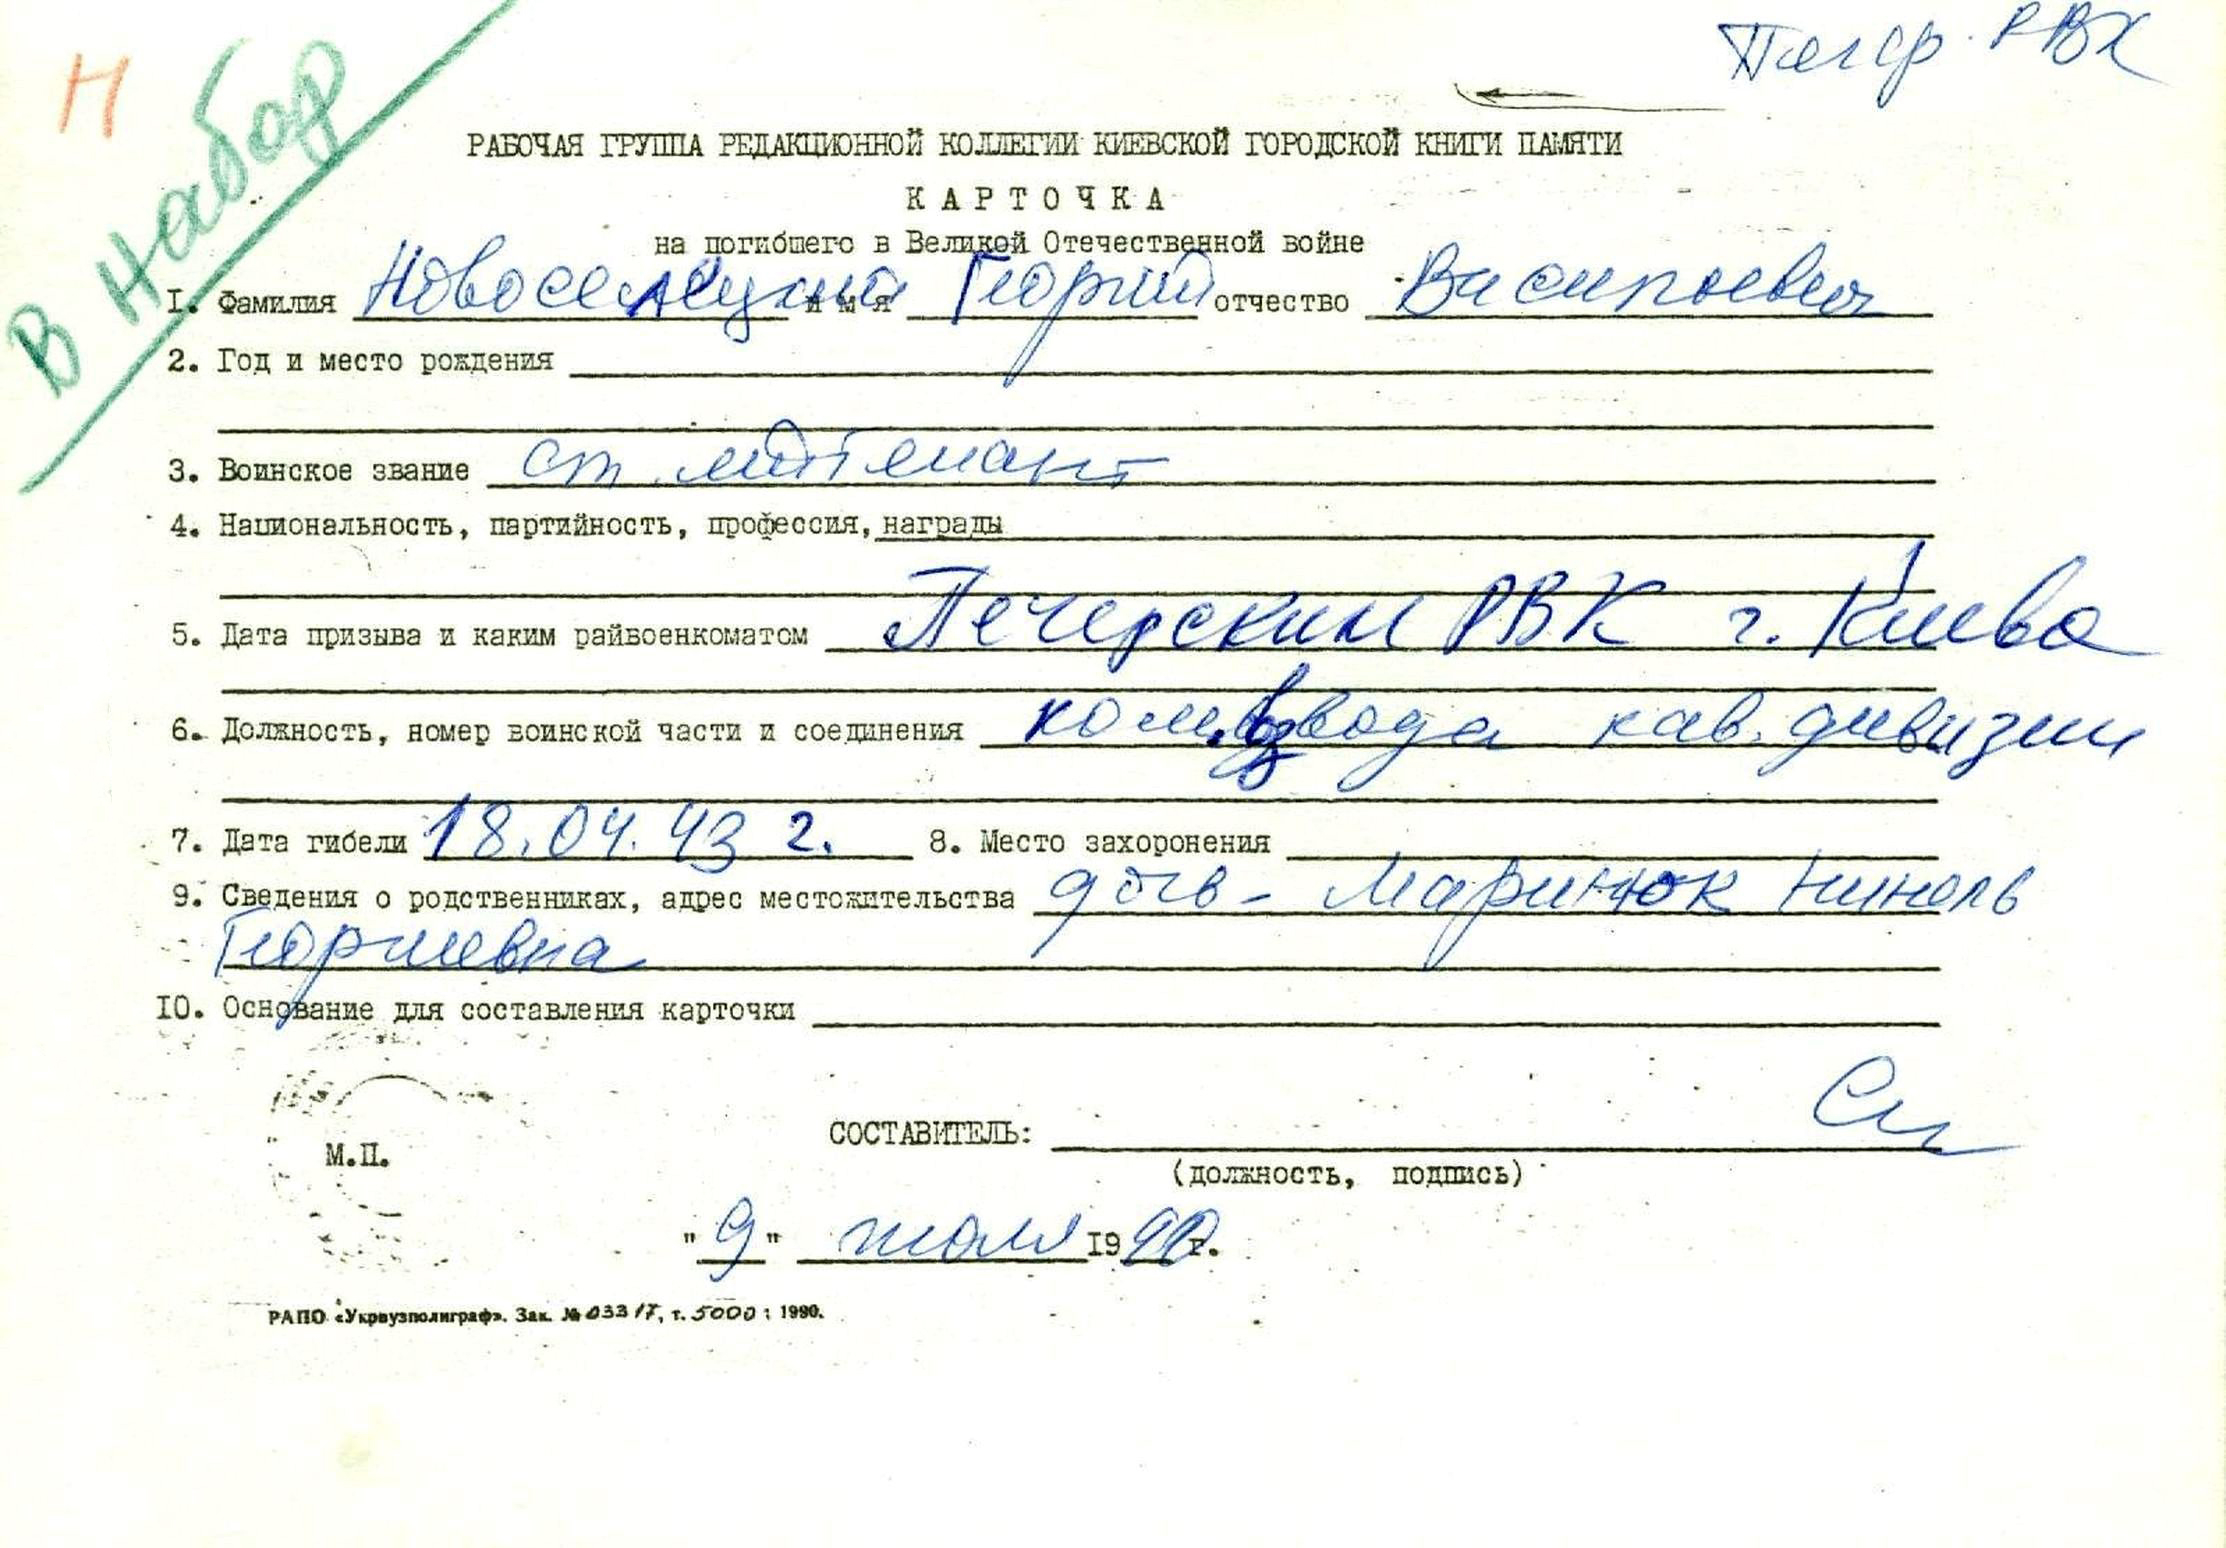 Н
В набор
Печер. РВК
РАБОЧАЯ ГРУППА РЕДАКЦИОННОЙ КОЛЛЕГИИ КИЕВСКОЙ ГОРОДСКОЙ КНИГИ ПАМЯТИ
КАРТОЧКА
на погибшего в Великой Отечественной войне
1. Фамилия Новоселецкий имя Георгий отчество Васильевич
2. Год и место рождения
3. Воинское звание ст. лейтенант
4. Национальность, партийность, профессия, награды
5. Дата призыва и каким райвоенкоматом Печерским РВК г. Киева
6. Должность, номер воинской части и соединения ком. взвода кав. дивизии
7. Дата гибели 18.04.43 г. 8. Место захоронения
9. Сведения о родственниках, адрес местожительства дочь - Маринюк Нинель
Георгиевна
10. Основание для составления карточки
М.П.
СОСТАВИТЕЛЬ:
(должность, подпись)
"9" июля 1990 г.
РАПО «Укрвузполиграф». Зак. № 03317, т. 5000: 1990.